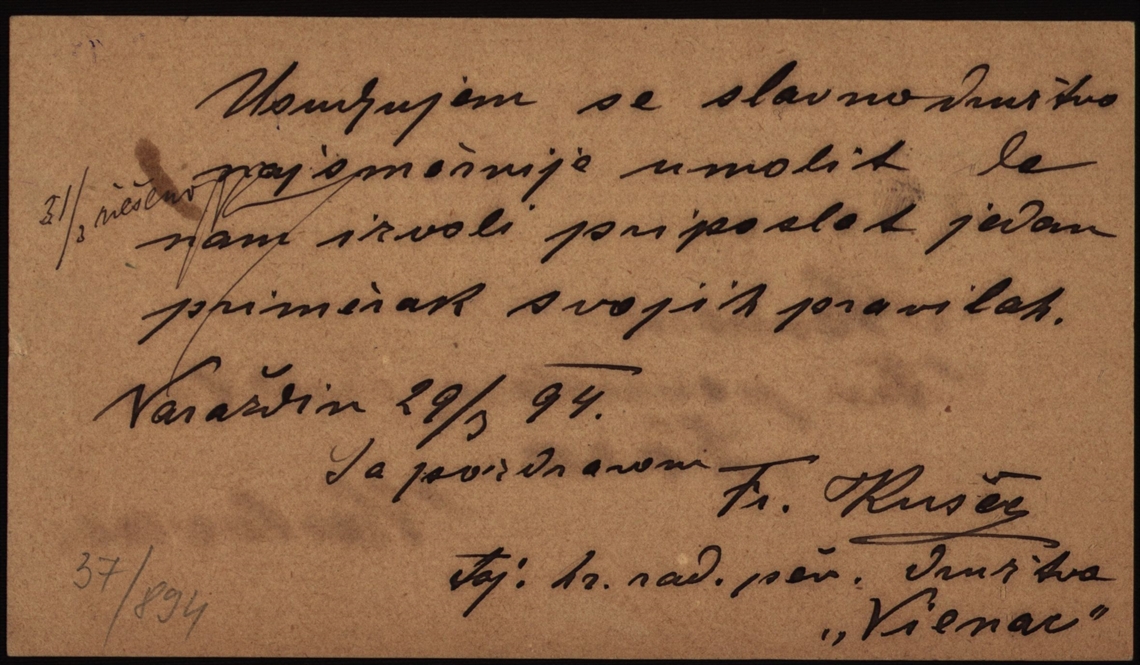 Usudjujem se slavno družtvo
najsměrnije umolit da
31/3 riešeno
nam izvoli pripošlat jedan
priměrak svojih pravilah.
Varaždin 29/3 94.
Sa pozdravom
Fr. Kuščez
Taj. hr. rad. pěv. družtva
„Vienac"
37/894